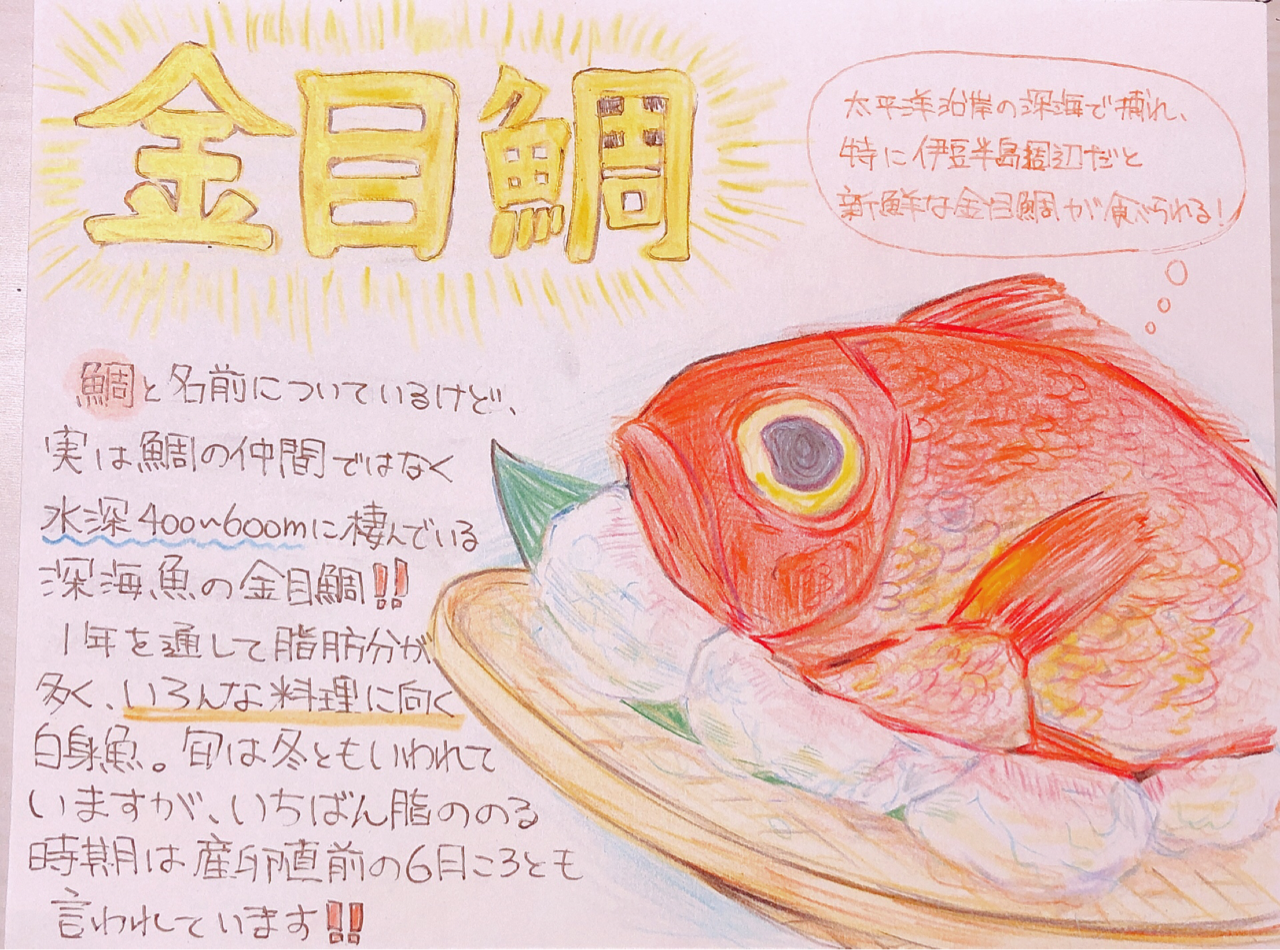 金目鯛
太平洋沿岸の深海で捕れ、
特に伊豆半島周辺だと
新鮮な金目鯛が食べられる!
鯛と名前についているけど、
実は鯛の仲間ではなく
水深400~600mに棲んでいる
深海魚の金目鯛!!
1年を通して脂肪分が
多く、いろんな料理に向く
白身魚。旬は冬ともいわれて
いますが、いちばん脂ののる
時期は産卵直前の6月ころとも
言われています!!